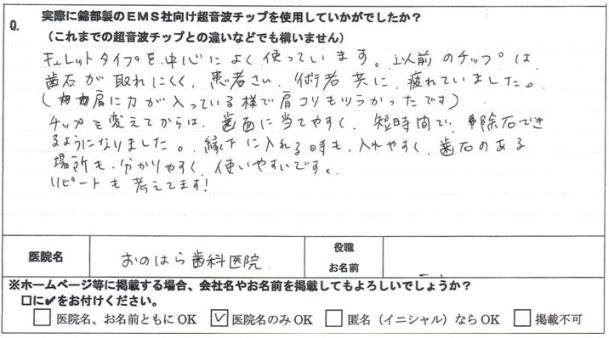 Q.
実際に錦部製のEMS社向け超音波チップを使用していかがでしたか？
（これまでの超音波チップとの違いなどでも構いません）
キュレットタイプを中心によく使っています。以前のチップは
歯石が取れにくく、患者さん、術者共に、疲れていました。
（肩に力が入っている様で肩コリもツラかったです）
チップを変えてからは、歯面に当てやすく、短時間で、除石でき
るようになりました。縁下に入れる時も、入れやすく、歯石のある
場所も、分かりやすく、使いやすいです。
リピートも考えてます！
医院名
おのはら歯科医院
役職
お名前
※ホームページ等に掲載する場合、会社名やお名前を掲載してもよろしいでしょうか？
□に✔をお付けください。
□ 医院名、お名前ともにOK ☑ 医院名のみOK □ 匿名（イニシャル）ならOK □ 掲載不可